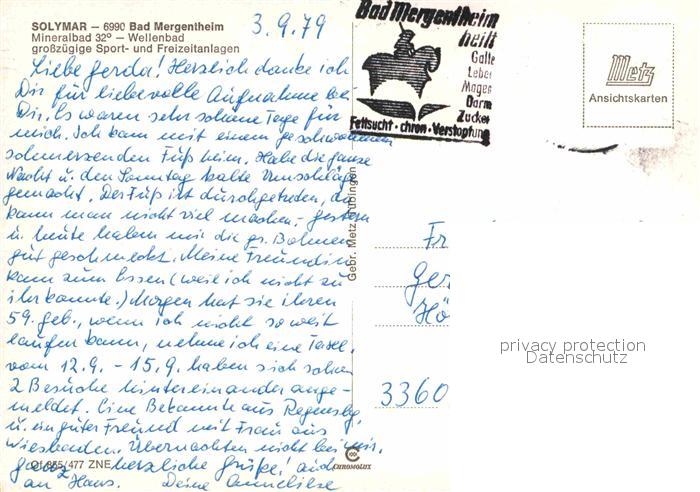 SOLYMAR – 6990 Bad Mergentheim
Mineralbad 32° – Wellenbad
großzügige Sport- und Freizeitanlagen
3.9.79
Liebe Gerda! Herzlich danke ich
Dir für liebevolle Aufnahme bei
Dir. Es waren sehr schöne Tage für
mich. Ich kam mit einem geschwollenen
schmerzenden Fuß heim. Habe die ganze
Nacht u. den Sonntag kalte Umschläge
gemacht. Der Fuß ist durchgetreten, da
kann man nicht viel machen. – Gestern
u. heute haben mir die gr. Bohnen
gut geschmeckt. Meine Freundin
kam zum Essen (weil ich nicht zu
ihr konnte.) Morgen hat sie ihren
59. Geb., wenn ich nicht so weit
laufen kann, nehme ich eine Taxe.
vom 12.9. – 15.9. haben sich schon
2 Besuche hintereinander ange-
meldet. Eine Bekannte aus Regensbg.
u. ein guter Freund mit Frau aus
Wiesbaden. Übernachten nicht bei mir.
Ganz herzliche Grüße! auch
an Hans. Deine Anneliese
477 ZNE
CHROMOLUX
Gebr. Metz Tübingen
Bad Mergentheim
heilt
Galle
Leber
Magen
Darm
Zucker
Fettsucht · chron · Verstopfung
Metz
Ansichtskarten
Fr
Ger
Hö
3360
privacy protection
Datenschutz